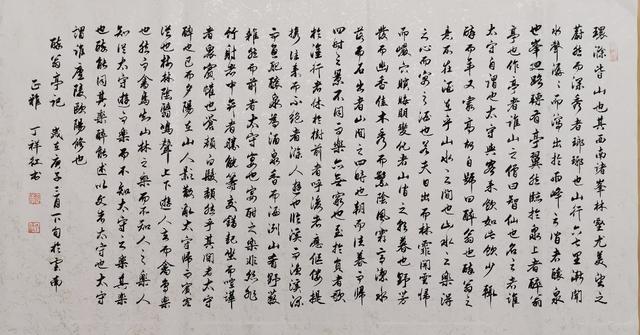 環滁皆山也其西南諸峯林壑尤美望之
蔚然而深秀者瑯琊也山行六七里漸聞
水聲潺潺而瀉出於兩峰之間者釀泉
也峯迴路轉有亭翼然臨於泉上者醉翁
亭也作亭者誰山之僧曰智仙也名之者誰
太守自謂也太守與客來飲於此飲少輒
醉而年又最高故自號曰醉翁也醉翁之
意不在酒在乎山水之間也山水之樂得
之心而寓之酒也若夫日出而林霏開雲歸
而巖穴暝晦明變化者山間之朝暮也野芳
發而幽香佳木秀而繁陰風霜高潔水
落而石出者山間之四時也朝而往暮而歸
四時之景不同而樂亦無窮也至於負者歌
於塗行者休於樹前者呼後者應傴僂提
攜往來而不絕者滁人遊也臨溪而漁溪深
而魚肥釀泉為酒泉香而酒洌山肴野蔌
雜然而前者太守宴也宴酣之樂非絲非
竹射者中弈者勝觥籌交錯起坐而諠譁
者眾賓懽也蒼顏白髮頹然乎其間者太守
醉也已而夕陽在山人影散亂太守歸而賓客
從也樹林陰翳鳴聲上下遊人去而禽鳥樂
也然而禽鳥知山林之樂而不知人之樂人
知從太守遊而樂而不知太守之樂其樂
也醉能同其樂醒能述以文者太守也太守
謂誰廬陵歐陽修也
醉翁亭記 歲在庚子三月下旬於雲南
正雅 丁祥紅書